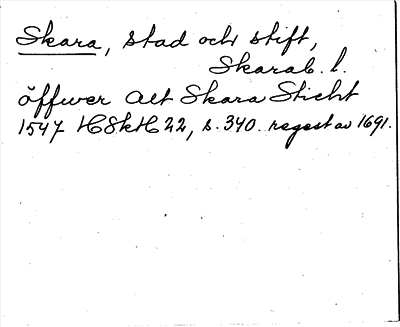 Skara, stad och stift,
Skarab. l.
öffwer Alt Skara Sticht
1547 HSkH 22, s. 340. regest av 1691.